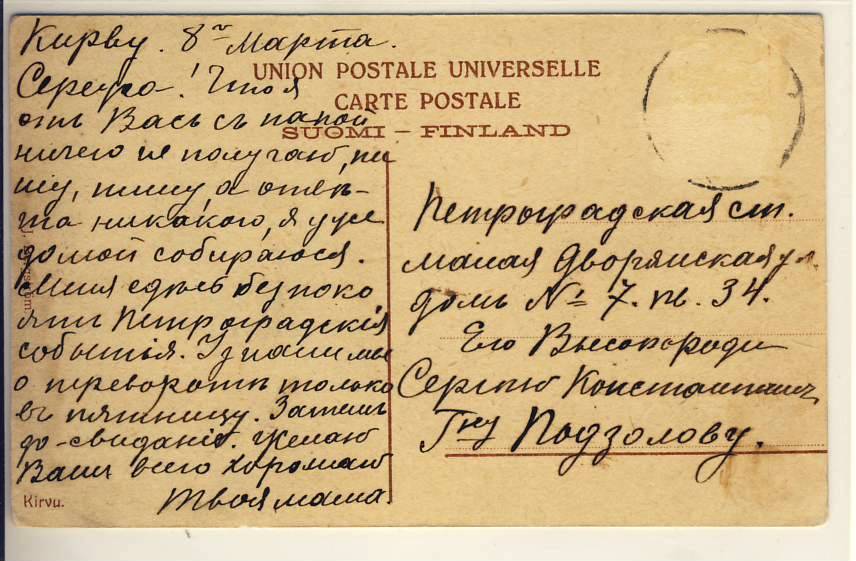 Кирву. 8го Марта.
UNION POSTALE UNIVERSELLE
CARTE POSTALE
SUOMI – FINLAND
Сережа! Что я
отъ Васъ съ папой
ничего не получаю, пи
шу, пишу, а отвѣ-
та никакого, я уже
домой собираюся.
Меня сдѣсь безпоко
ятъ Петроградскія
событія. Узнали мы
о переворотѣ только
въ пятницу. Затемъ
до-свиданія. Желаю
Вамъ всего хорошаго
Твоя мама.
Kirvu.
Петроградская ст.
малая Дворянская ул.
домъ № 7. кв. 34.
Его Высокороди
Сергѣю Константинич
Гну Подзолову.